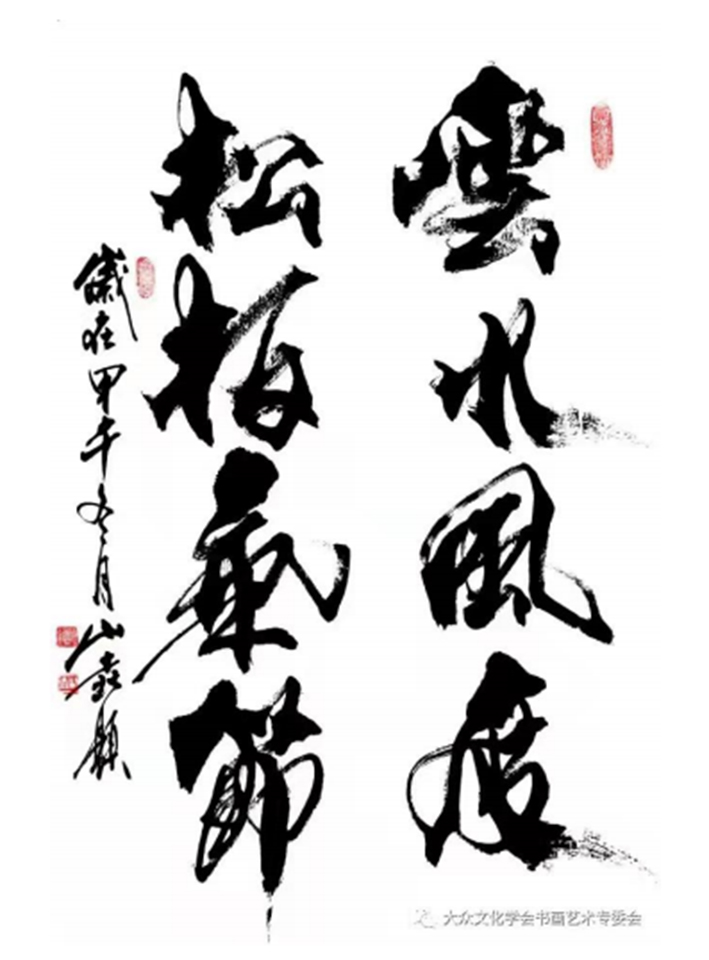 雲水風度
松柏氣節
歲在甲午冬月山題
大众文化学会书画艺术专委会